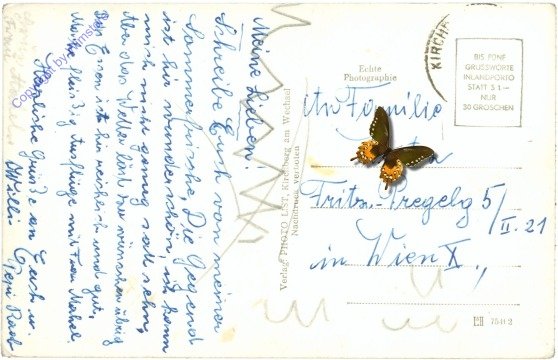 Meine Lieben!
Schreibe Euch von meiner
Sommerfrische. Die Gegend
ist hier wunderschön, ich kann
mich nicht genug satt sehn,
Aber das Wetter läßt zu wünschen übrig
Das Essen ist hier reichlich und gut,
Mache fleißig Ausflüge mit
Herzliche Grüße an Euch
Willi
Copyright by
Echte
Photographie
Verlag PHOTO LIST, Kirchberg am Wechsel
Nachdruck verboten
KIRCHB
BIS FÜNF
GRUSSWORTE
INLANDPORTO
STATT S 1·—
NUR
30 GROSCHEN
Familie
Fritz-Pregelg 5/II. 21
in Wien X.,
7541 2